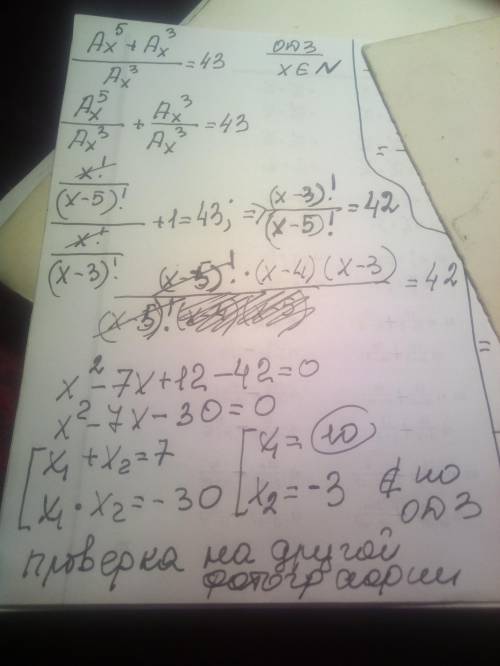 (Aₓ⁵ + Aₓ³)/Aₓ³ = 43
ОДЗ
x ∈ N
Aₓ⁵/Aₓ³ + Aₓ³/Aₓ³ = 43
(x!/(x-5)!)/(x!/(x-3)!) + 1 = 43; => (x-3)!/(x-5)! = 42
(x-5)!·(x-4)(x-3)/(x-5)! = 42
x² - 7x + 12 - 42 = 0
x² - 7x - 30 = 0
[x₁ + x₂ = 7
x₁ · x₂ = -30
[x₁ = 10
x₂ = -3 ∉ по ОДЗ
проверка на другой
фотографии